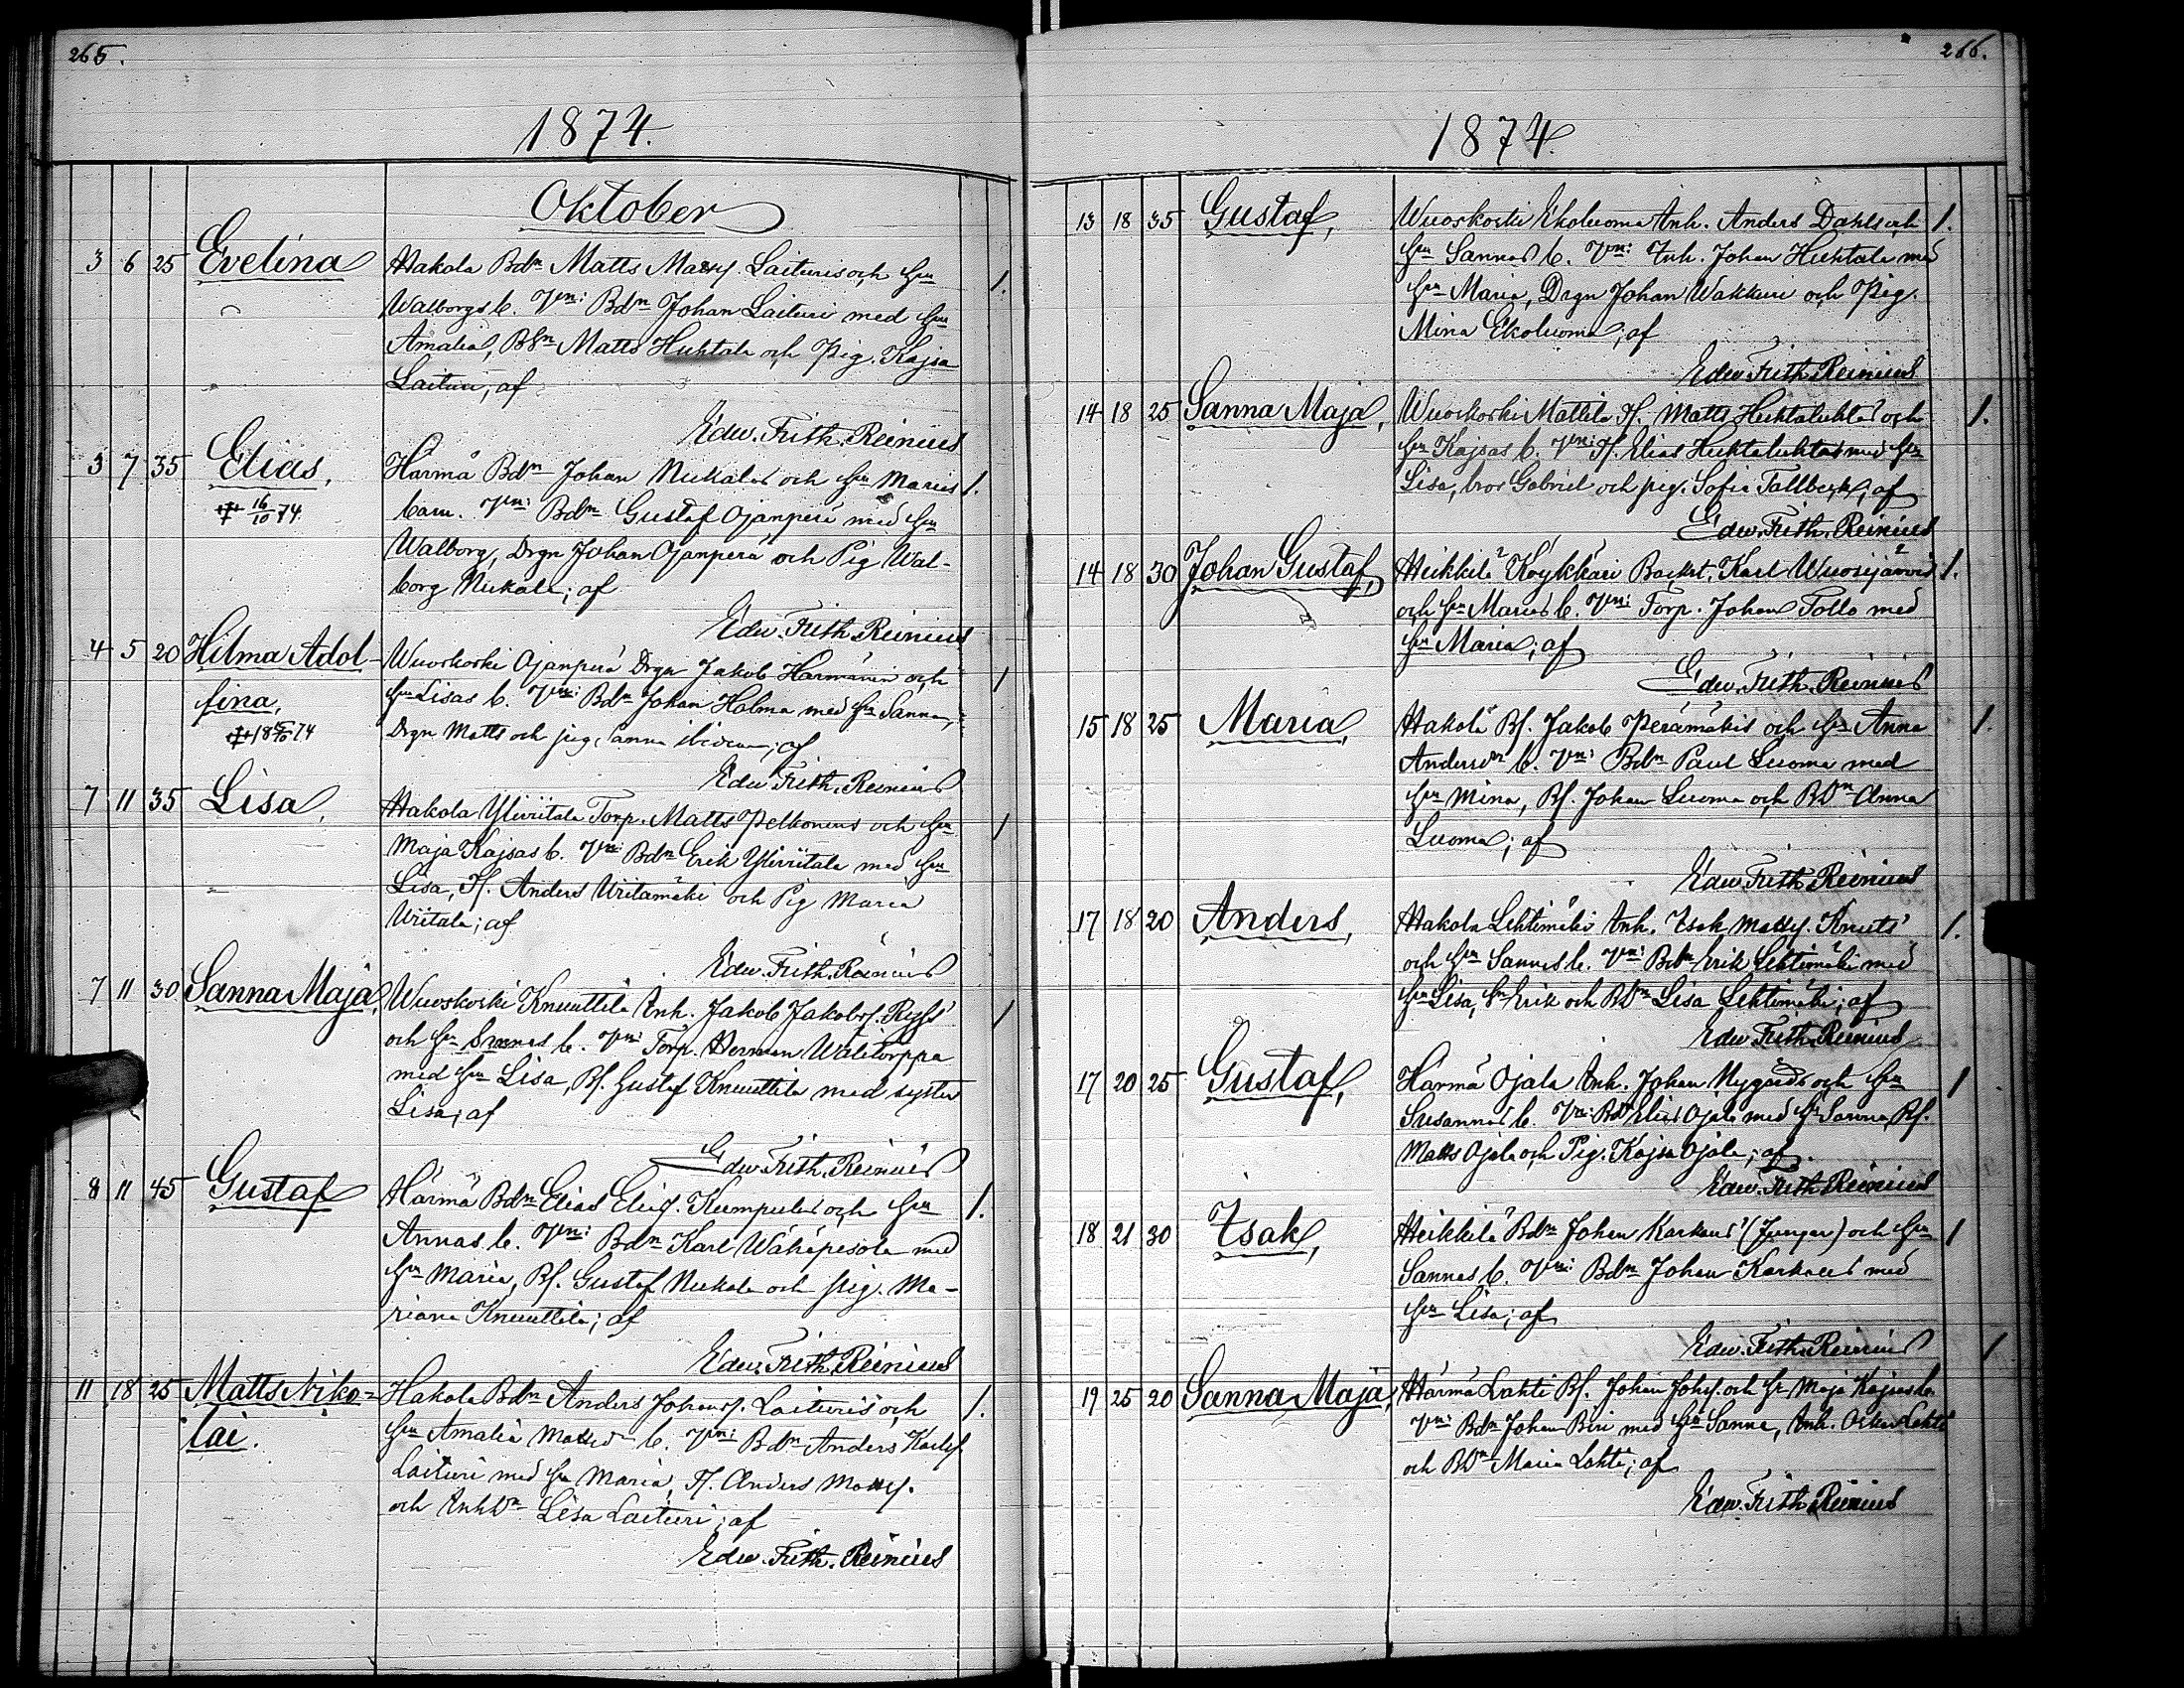 265.
1874.
Oktober
3 6 25 Evelina Hakola Bdn Matts Mattsf. Laituris och Hu
Walborgs b. Vn: Bdn Johan Laituri med Hu
Amalia, BSn Matts Huhtala och Pig. Kajsa
Laituri; af
Edw. Frith. Reinius
3 7 35 Elias, Härmä Bdn Johan Nukalas och Hu Marias 1.
†† 16/10 74. barn. Vn: Bdn Gustaf Ojanperä med Hu
Walborg, Drgn Johan Ojanperä och Pig Wal-
borg Nukala; af
Edw. Frith. Reinius
4 5 20 Hilma Adol- Wuoskoski Ojanperä Drgn Jakob Harmänen och 1
fina, Hu Lisas b. Vn: Bdn Johan Holma med Hu Sanna,
Drgn Matts och pig. Sanna ibidem; af
Edw. Frith. Reinius
7 11 35 Lisa, Hakola Yliviitala Torp. Matts Pelkonens och Hu 1
Maja Kajsas b. Vn: Bdn Erik Yliviitala med Hu
Lisa, If. Anders Viitamäki och Pig Maria
Viitala; af
Edw. Frith. Reinius
7 11 30 Sanna Maja, Wuoskoski Knuuttila Inh. Jakob Jakobsf. Ryss' 1
och Hu Sannas b. Vn: Torp. Herman Walitorppa
med Hu Lisa, Bf. Gustaf Knuuttila med syster
Lisa; af
Edw. Frith. Reinius
8 11 45 Gustaf Härmä Bdn Elias Elisf. Kumpulas och Hu 1.
Annas b. Vn: Bdn Karl Wähäpesola med
Hu Maria, Bf. Gustaf Nukala och pig. Ma-
riana Knuuttila; af
Edw. Frith. Reinius
11 18 25 Matts Niko= Hakola Bdn Anders Johansf. Laituris och 1.
lai. Hu Amalia Mattsdr b. Vn: Bdn Anders Karlsf.
Laituri med Hu Maria, If. Anders Mattsf.
och Inhdn Lisa Laituri; af
Edw. Frith. Reinius
266.
1874.
13 18 35 Gustaf, Wuoskoski Ekoluoma Inh. Anders Dahls och 1.
Hu Sannas b. Vn: Inh. Johan Huhtala med
Hu Maria, Drgn Johan Wakkuri och Pig.
Mina Ekoluoma; af
Edw. Frith. Reinius
14 18 25 Sanna Maja, Wuoskoski Mattila If. Matts Huhtaluhtas och 1.
Hu Kajsas b. Vn: If. Elias Huhtaluhta med Hu
Lisa, bror Gabriel och pig. Sofia Tallback; af
Edw. Frith. Reinius
14 18 30 Johan Gustaf, Heikkilä Köykkäri Backst. Karl Wuorijärvis 1.
och Hu Marias b. Vn: Torp. Johan Tollo med
Hu Maria; af
Edw. Frith. Reinius
15 18 25 Maria, Hakola Bf. Jakob Perämäkis och Hu Anna 1.
Andersdr b. Vn: Bdn Paul Luoma med
Hu Mina, Bf. Johan Luoma och BDn Anna
Luoma; af
Edw. Frith. Reinius
17 18 20 Anders, Hakola Lehtimäki Inh. Isak Mattsf. Knuts' 1.
och Hu Sannas b. Vn: Bdn Erik Lehtimäki med
Hu Lisa, Sn Erik och BDn Lisa Lehtimäki; af
Edw. Frith. Reinius
17 20 25 Gustaf, Härmä Ojala Inh. Johan Nygårds och Hu 1
Susannas b. Vn: Bdn Elias Ojala med Hu Sanna, Bf.
Matts Ojala och Pig. Kajsa Ojala; af.
Edw. Frith. Reinius
18 21 30 Isak, Heikkilä Bdn Johan Karkaus' (Jungar) och Hu 1
Sannas b. Vn: Bdn Johan Karkaus med
Hu Lisa; af
Edw. Frith. Reinius 1
19 25 20 Sanna Maja, Härmä Lahti Bf. Johan Johsf. och Hu Maja Kajsas b.
Vn: Bdn Johan Biri med Hu Sanna, Inh. Oskar Lahti
och BDn Maria Lahti; af
Edw. Frith. Reinius